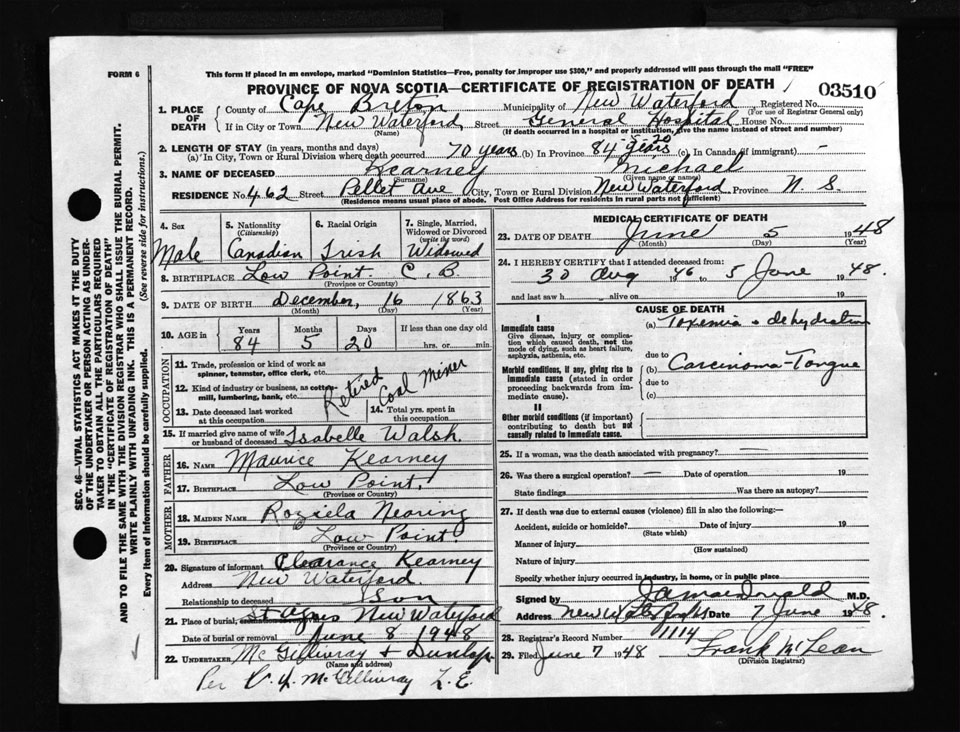 FORM 6
This form if placed in an envelope, marked "Dominion Statistics—Free, penalty for improper use $300," and properly addressed will pass through the mail "FREE"
PROVINCE OF NOVA SCOTIA—CERTIFICATE OF REGISTRATION OF DEATH
03510
1. PLACE OF DEATH
County of Cape Breton Municipality of New Waterford Registered No.
(For use of Registrar General only)
If in City or Town New Waterford, Street General Hospital House No.
(Name) (If death occurred in a hospital or institution, give the name instead of street and number)
2. LENGTH OF STAY (in years, months and days) 5-20
(a) In City, Town or Rural Division where death occurred 70 years (b) In Province 84 years (c) In Canada (if immigrant) –
3. NAME OF DECEASED Kearney Michael
(Surname) (Given name or names)
RESIDENCE No. 462 Street Pellet Ave City, Town or Rural Division New Waterford Province N. S.
(Residence means usual place of abode. Post Office Address for residents in rural parts not sufficient)
SEC. 46—VITAL STATISTICS ACT MAKES IT THE DUTY
OF THE UNDERTAKER OR PERSON ACTING AS UNDER-
TAKER TO OBTAIN ALL THE PARTICULARS REQUIRED
IN THE "CERTIFICATE OF REGISTRATION OF DEATH"
AND TO FILE THE SAME WITH THE DIVISION REGISTRAR WHO SHALL ISSUE THE BURIAL PERMIT.
WRITE PLAINLY WITH UNFADING INK. THIS IS A PERMANENT RECORD.
Every item of Information should be carefully supplied. (See reverse side for instructions.)
4. Sex
Male
5. Nationality (Citizenship)
Canadian
6. Racial Origin
Irish
7. Single, Married, Widowed or Divorced (write the word)
Widowed
8. BIRTHPLACE Low Point. C. B.
(Province or Country)
9. DATE OF BIRTH December, 16 1863
(Month) (Day) (Year)
10. AGE in Years Months Days If less than one day old
84 5 20 hrs. or min.
OCCUPATION
11. Trade, profession or kind of work as spinner, teamster, office clerk, etc.
12. Kind of industry or business, as cotton mill, lumbering, bank, etc.
Retired Coal Miner
13. Date deceased last worked at this occupation
14. Total yrs. spent in this occupation
15. If married give name of wife or husband of deceased Isabelle Walsh.
FATHER
16. NAME Maurice Kearney
17. BIRTHPLACE Low Point,
(Province or Country)
MOTHER
18. MAIDEN NAME Roziela Nearing
19. BIRTHPLACE Low Point.
(Province or Country)
20. Signature of informant Clearance Kearney
Address New Waterford.
Relationship to deceased Son
21. Place of burial, St Agnes New Waterford
Date of burial or removal June 8 1948
22. UNDERTAKER McGillivray & Dunlop
(Name and address)
Per McGillivray L. E.
MEDICAL CERTIFICATE OF DEATH
23. DATE OF DEATH June 5 1948
(Month) (Day) (Year)
24. I HEREBY CERTIFY that I attended deceased from:
30 Aug 46 to 5 June 1948.
and last saw h alive on 19
CAUSE OF DEATH
I
Immediate cause
Give disease, injury or complication which caused death, not the mode of dying, such as heart failure, asphyxia, asthenia, etc.
(a) Toxemia & dehydration
due to
Morbid conditions, if any, giving rise to immediate cause (stated in order proceeding backwards from immediate cause).
(b) Carcinoma-Tongue
due to
(c)
II
Other morbid conditions (if important) contributing to death but not causally related to immediate cause.
25. If a woman, was the death associated with pregnancy? —
26. Was there a surgical operation? — Date of operation 19
State findings Was there an autopsy?
27. If death was due to external causes (violence) fill in also the following:—
Accident, suicide or homicide? Date of injury 19
(State which)
Manner of injury
(How sustained)
Nature of injury
Specify whether injury occurred in industry, in home, or in public place
Signed by M.D.
Address Date 7 June 1948
28. Registrar's Record Number 1114
29. Filed June 7 1948 Frank McLean
(Division Registrar)